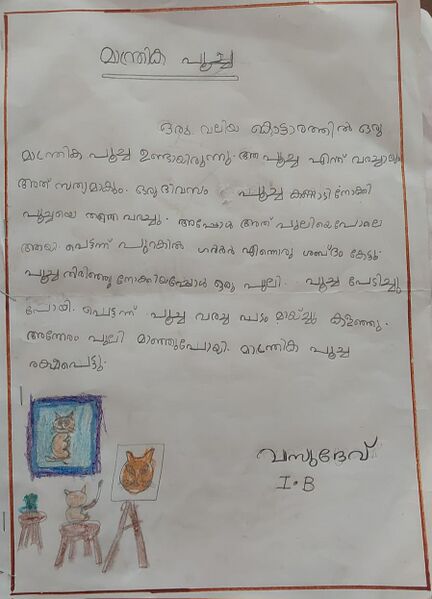 മാന്ത്രിക പൂച്ച
ഒരു വലിയ കൊട്ടാരത്തിൽ ഒരു
മാന്ത്രിക പൂച്ച ഉണ്ടായിരുന്നു. ആ പൂച്ച എന്ത് വരച്ചാലും
അത് സത്യമാകും. ഒരു ദിവസം പൂച്ച കണ്ണാടി നോക്കി
പൂച്ചയെ തന്നെ വരച്ചു. അപ്പോൾ അത് പുലിയെപോലെ
ആയി. പെട്ടന്ന് പുറകിൽ ഗർർർ എന്നൊരു ശബ്ദം കേട്ടു.
പൂച്ച തിരിഞ്ഞു നോക്കിയപ്പോൾ ഒരു പുലി. പൂച്ച പേടിച്ചു
പോയി. പെട്ടന്ന് പൂച്ച വരച്ച പടം മായ്ച്ചു കളഞ്ഞു.
അന്നേരം പുലി മാഞ്ഞുപോയി. മാന്ത്രിക പൂച്ച
രക്ഷപെട്ടു.
വസുദേവ്
I.B